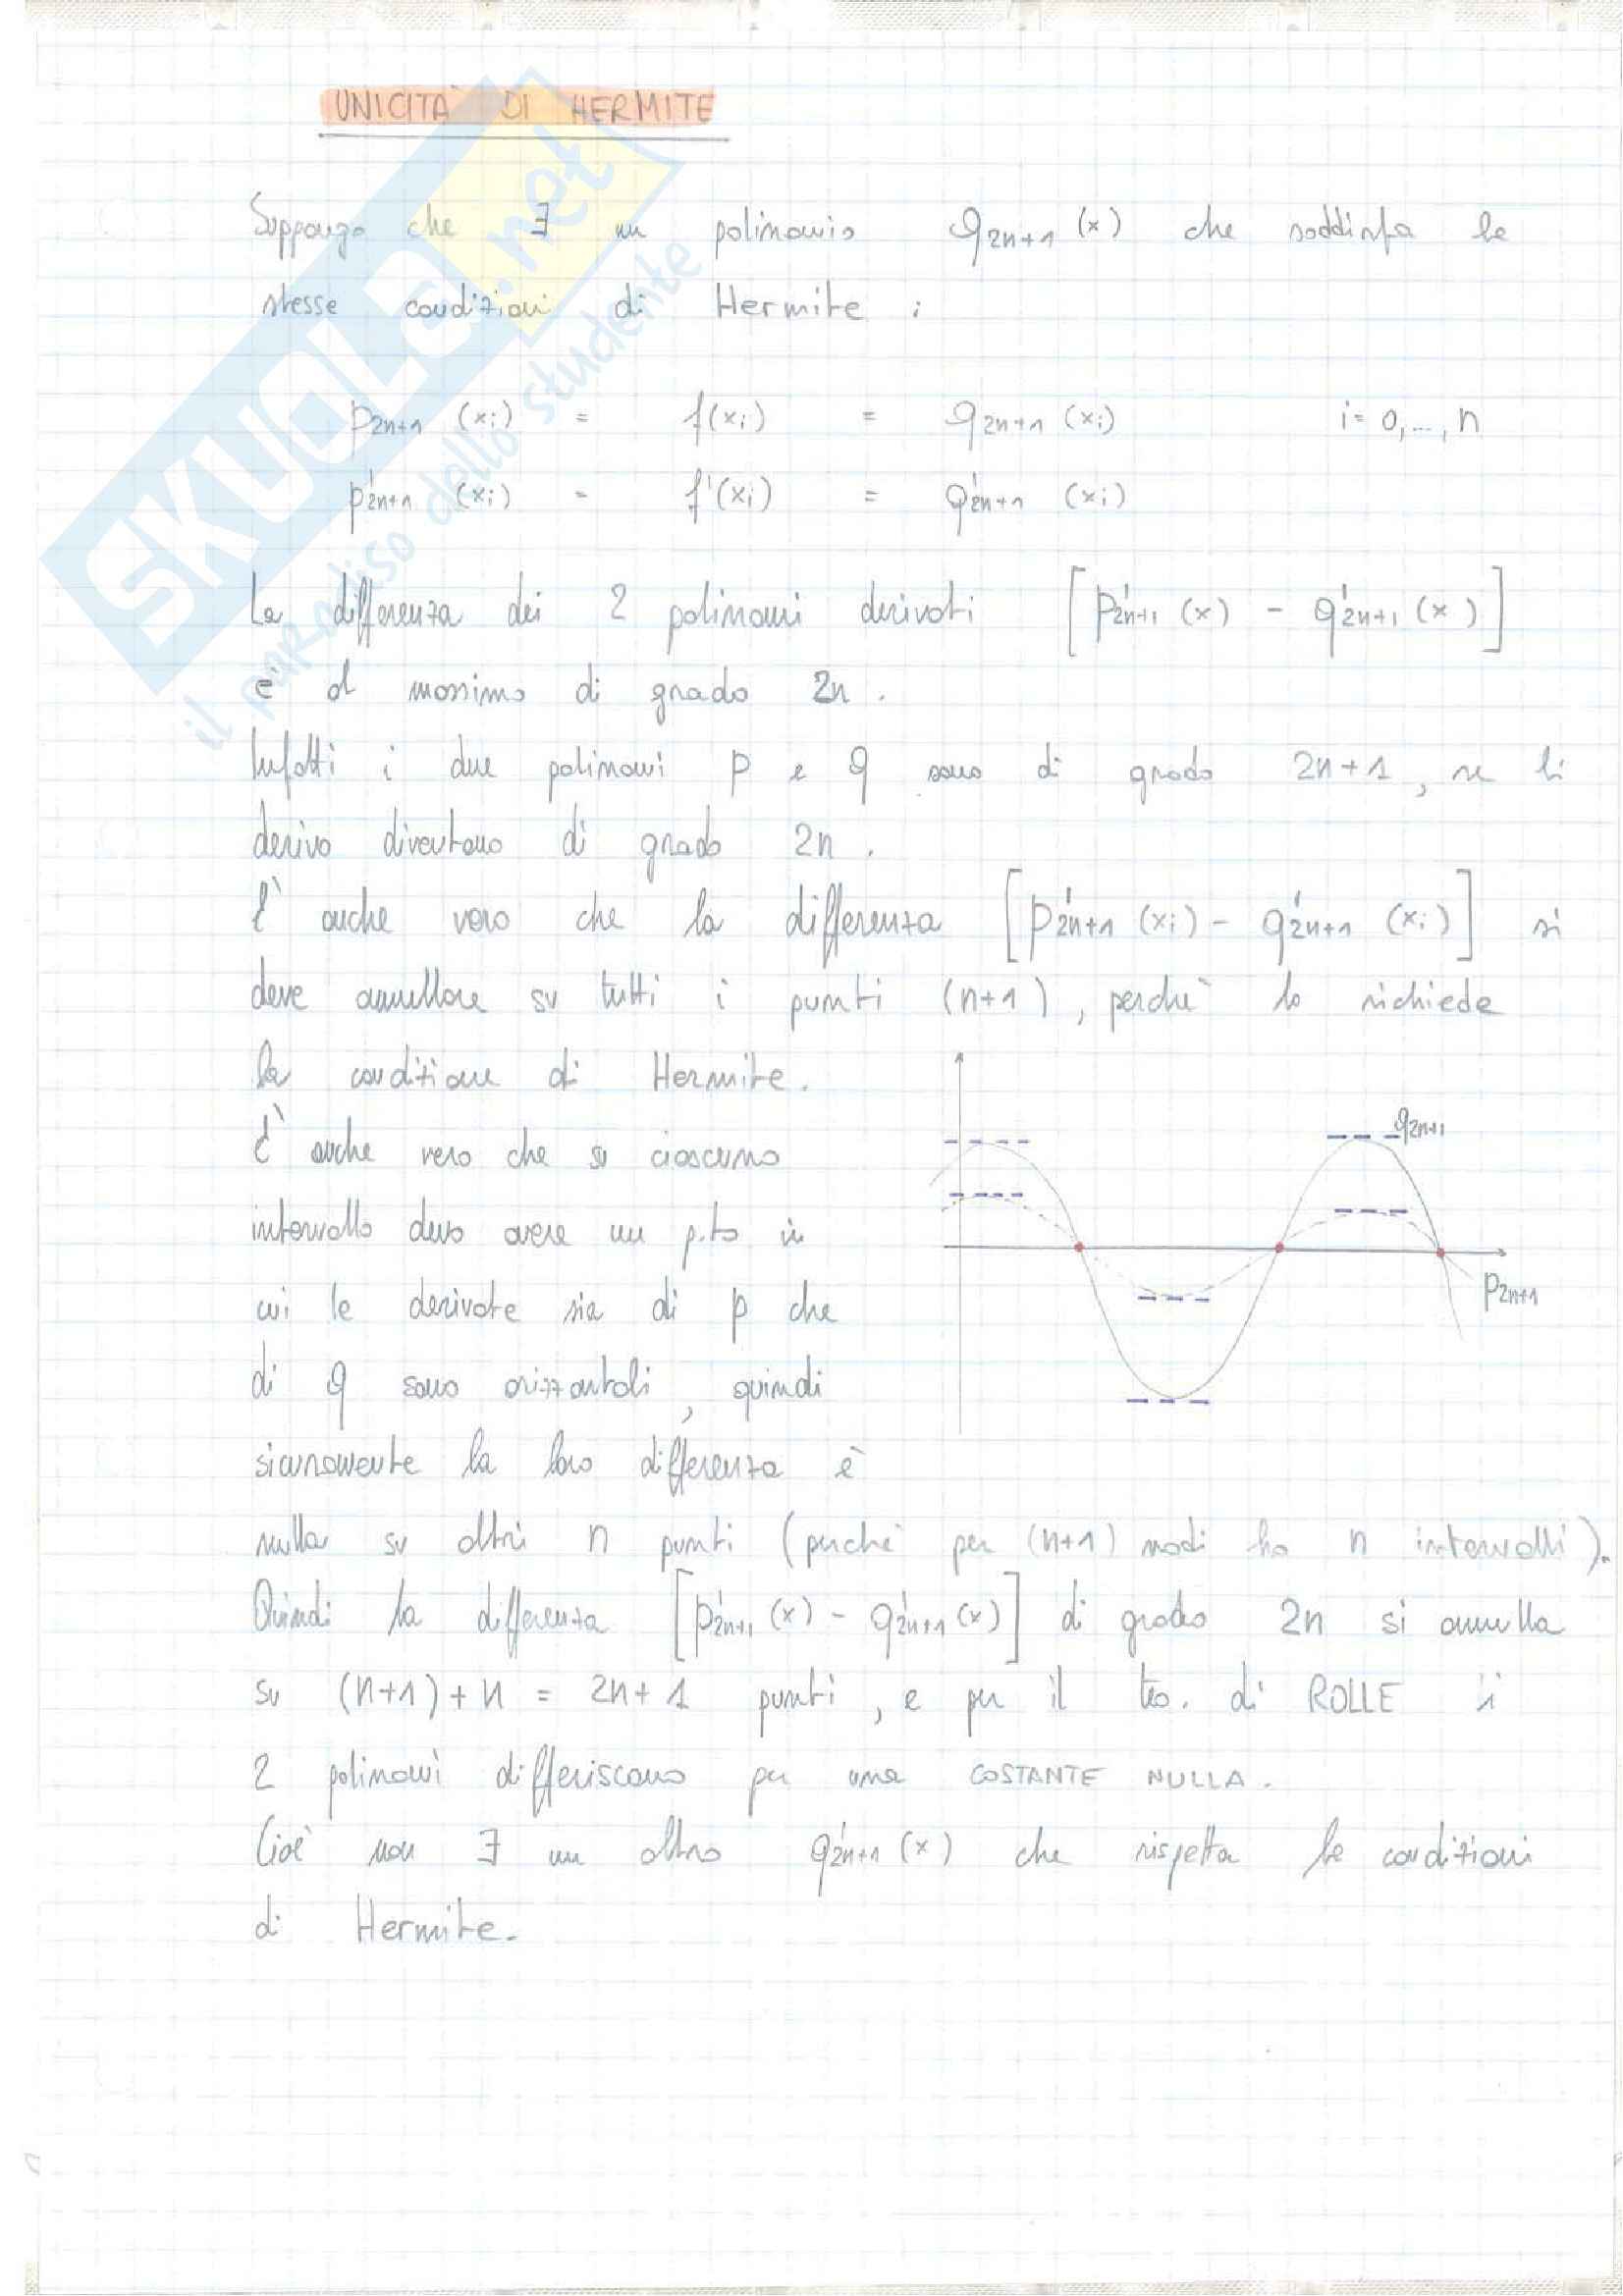 UNICITA' DI HERMITE
Suppongo che ∃ un polinomio q2n+1 (x) che soddisfa le
stesse condizioni di Hermite :
p2n+1 (xi) = f(xi) = q2n+1 (xi) i= 0,...,n
p'2n+1 (xi) = f'(xi) = q'2n+1 (xi)
La differenza dei 2 polinomi derivati [p'2n+1 (x) - q'2n+1 (x)]
e' al massimo di grado 2n.
Infatti i due polinomi p e q sono di grado 2n+1, se li
derivo diventano di grado 2n.
E' anche vero che la differenza [p'2n+1 (xi) - q'2n+1 (xi)] si
deve annullare su tutti i punti (n+1), perchè lo richiede
la condizione di Hermite.
E' anche vero che su ciascuno
intervallo devo avere un p.to in
cui le derivate sia di p che
di q sono orizzontali, quindi
sicuramente la loro differenza è
nulla su altri n punti (perchè per (n+1) nodi ho n intervalli).
Quindi la differenza [p'2n+1 (x) - q'2n+1 (x)] di grado 2n si annulla
su (n+1)+n = 2n+1 punti, e per il teo. di ROLLE i
2 polinomi differiscono per una COSTANTE NULLA.
Cioè non ∃ un altro q'2n+1 (x) che rispetta le condizioni
di Hermite.
q2n+1
p2n+1
SKUOLA.net
il paradiso dello studente